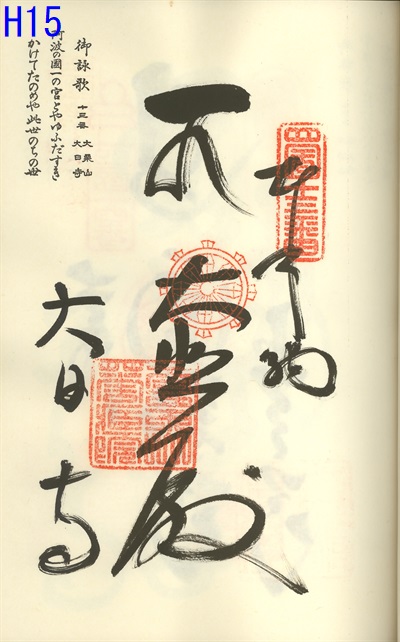 H15
奉納
大悲殿
大日寺
御詠歌 十三番 大栗山 大日寺
阿波の國一の宮とやゆふだすき
かけてたのめや此世のちの世